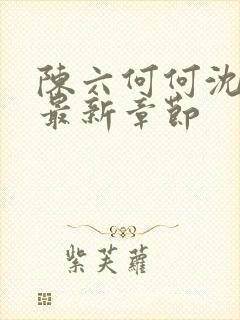 陳六何何沈
最新章節
紫芙蘿